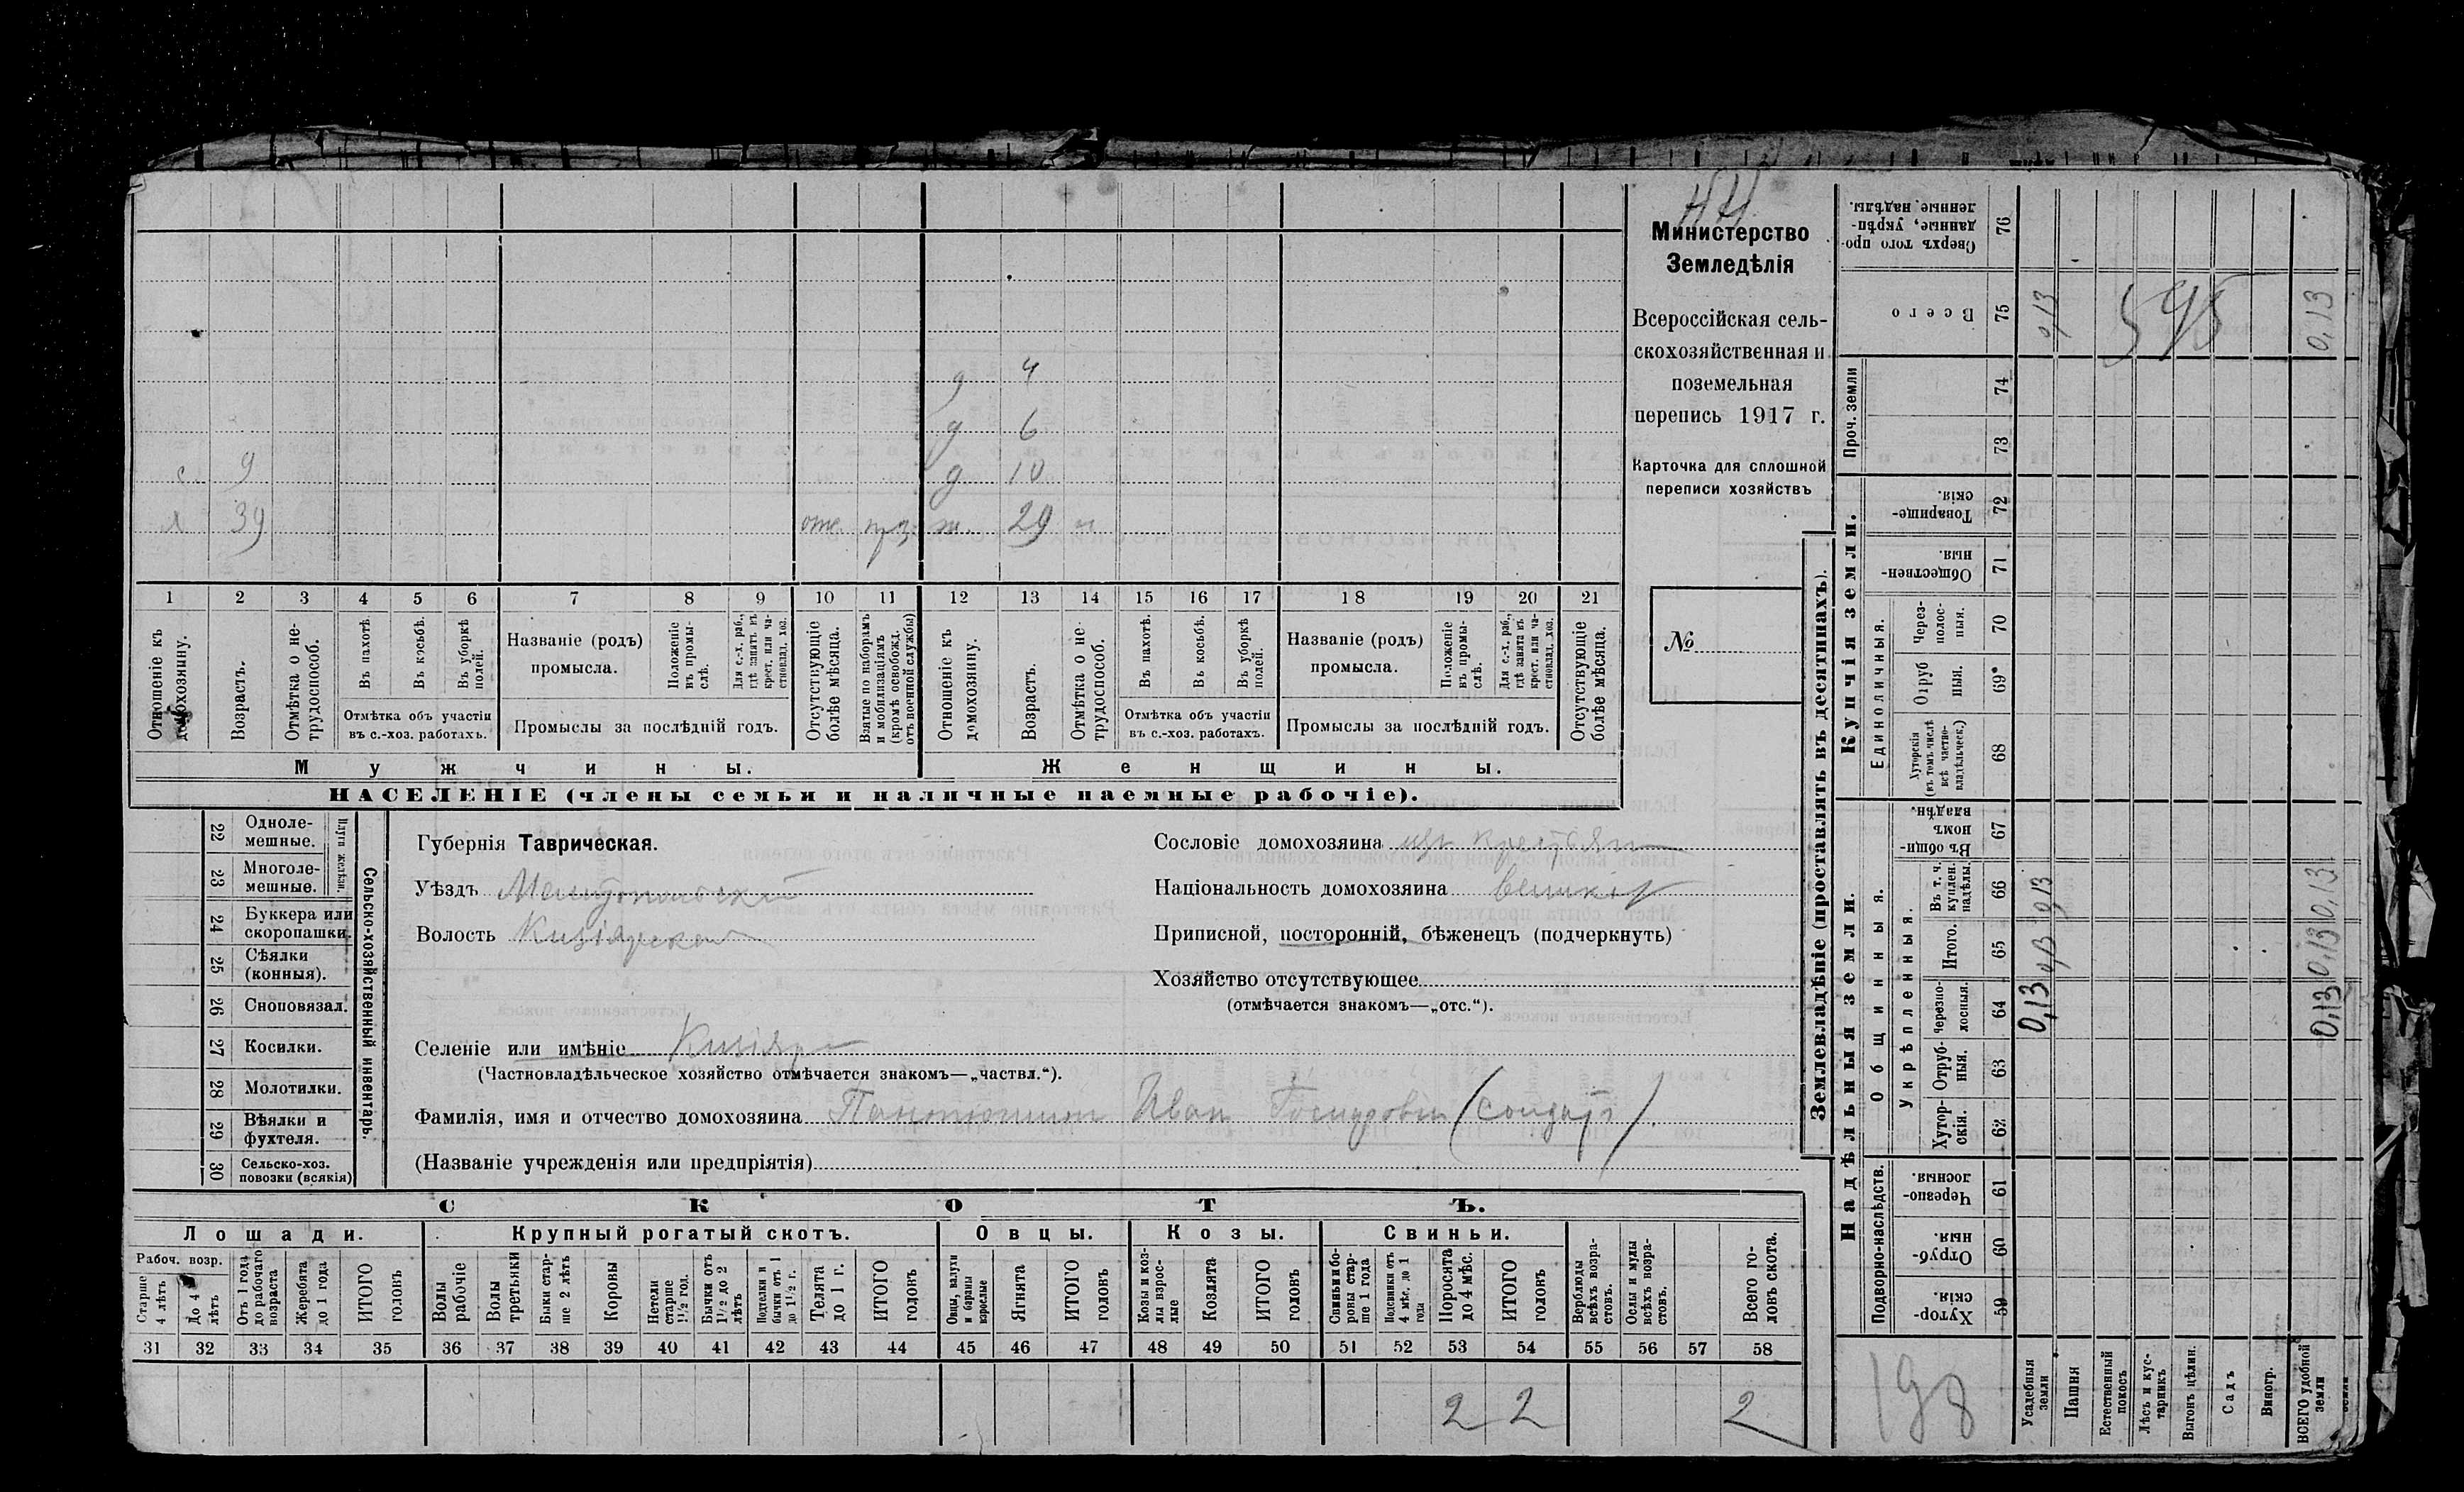 НН
Министерство
Земледѣлія
Всероссійская сель-
скохозяйственная и
поземельная
перепись 1917 г.
Карточка для сплошной
переписи хозяйствъ
№
д 4
д 6
с. 9 д 10
х 39 отс. ж. 29 н
1 2 3 4 5 6 7 8 9 10 11 12 13 14 15 16 17 18 19 20 21
Отношеніе къ домохозяину.
Возрастъ.
Отмѣтка о не-трудоспособ.
Въ пахотѣ.
Въ косьбѣ.
Въ уборкѣ полей.
Отмѣтка объ участіи
въ с.-хоз. работахъ.
Названіе (родъ)
промысла.
Положеніе въ промы-слѣ.
Для с.-х. раб., гдѣ занятъ въ крест. или ча-стновлад. хоз.
Промыслы за послѣдній годъ.
Отсутствующіе болѣе мѣсяца.
Взятые по наборамъ и мобилизаціямъ (кромѣ освобожд. отъ военной службы)
Отношеніе къ домохозяину.
Возрастъ.
Отмѣтка о не-трудоспособ.
Въ пахотѣ.
Въ косьбѣ.
Въ уборкѣ полей.
Отмѣтка объ участіи
въ с.-хоз. работахъ.
Названіе (родъ)
промысла.
Положеніе въ промы-слѣ.
Для с.-х. раб., гдѣ занята въ крест. или ча-стновлад. хоз.
Промыслы за послѣдній годъ.
Отсутствующіе болѣе мѣсяца.
Мужчины. Женщины.
НАСЕЛЕНІЕ (члены семьи и наличные наемные рабочіе).
22 Однолемешные.
23 Многолемешные.
Плуги желѣзн.
24 Буккера или скоропашки.
25 Сѣялки (конныя).
26 Сноповязал.
27 Косилки.
28 Молотилки.
29 Вѣялки и фухтеля.
30 Сельско-хоз. повозки (всякія)
Сельско-хозяйственный инвентарь.
Губернія Таврическая.
Уѣздъ Мелитопольскій
Волость Кизіярская
Сословіе домохозяина изъ крестьян
Національность домохозяина великор
Приписной, посторонній, бѣженецъ (подчеркнуть)
Хозяйство отсутствующее
(отмѣчается знакомъ—„отс.“).
Селеніе или имѣніе Кизіяръ
(Частновладѣльческое хозяйство отмѣчается знакомъ—„частвл.“).
Фамилія, имя и отчество домохозяина Иван (солдатъ).
(Названіе учрежденія или предпріятія)
СКОТЪ.
Лошади. Крупный рогатый скотъ. Овцы. Козы. Свиньи.
Рабоч. возр.
Старше 4 лѣтъ
До 4 лѣтъ
Отъ 1 года до рабочаго возраста
Жеребята до 1 года
ИТОГО головъ
Волы рабочіе
Волы третьяки
Быки стар-ше 2 лѣтъ
Коровы
Нетели старше 1½ год.
Бычки отъ 1½ до 2 лѣтъ
Подтелки и бычки отъ 1 до 1½ г.
Телята до 1 г.
ИТОГО головъ
Овцы, валухи и бараны взрослые
Ягнята
ИТОГО головъ
Козы и коз-лы взрос-лые
Козлята
ИТОГО головъ
Свиньи и бо-ровы стар-ше 1 года
Подсвинки отъ 4 мѣс. до 1 года
Поросята до 4 мѣс.
ИТОГО головъ
Верблюды всѣхъ возра-стовъ.
Ослы и мулы всѣхъ возра-стовъ.
Всего го-ловъ скота.
31 32 33 34 35 36 37 38 39 40 41 42 43 44 45 46 47 48 49 50 51 52 53 54 55 56 57 58
2 2 2
Землевладѣніе (проставлять въ десятинахъ).
Купчія земли.
Надѣльныя земли.
Проч. земли
Единоличныя.
Общинныя.
Укрѣпленныя.
Подворно-наслѣдств.
Сверхъ того про-данные, укрѣп-ленные надѣлы. 76
Всего 75 0,13 595 0,13
74
73
Товарище-скія. 72
Обществен-ныя. 71
Через-полос-ныя. 70
Отруб ныя. 69
Хуторскія (въ томъ числѣ всѣ частно-владѣльческ.) 68
Въ общин-номъ владѣн. 67
Въ т. ч. куплен. надѣлы. 66 0,13 0,13
Итого. 65 0,13 0,13
Черезпо-лосныя. 64 0,13 0,13
Отруб-ныя. 63
Хутор-скія. 62
Черезпо-лосныя. 61
Отруб-ныя. 60
Хутор-скія. 59
198
Усадебныя земли
Пашня
Естественный покосъ
Лѣсъ и кус-тарникъ
Выгонъ цѣлин.
Садъ
Виногр.
ВСЕГО удобной земли